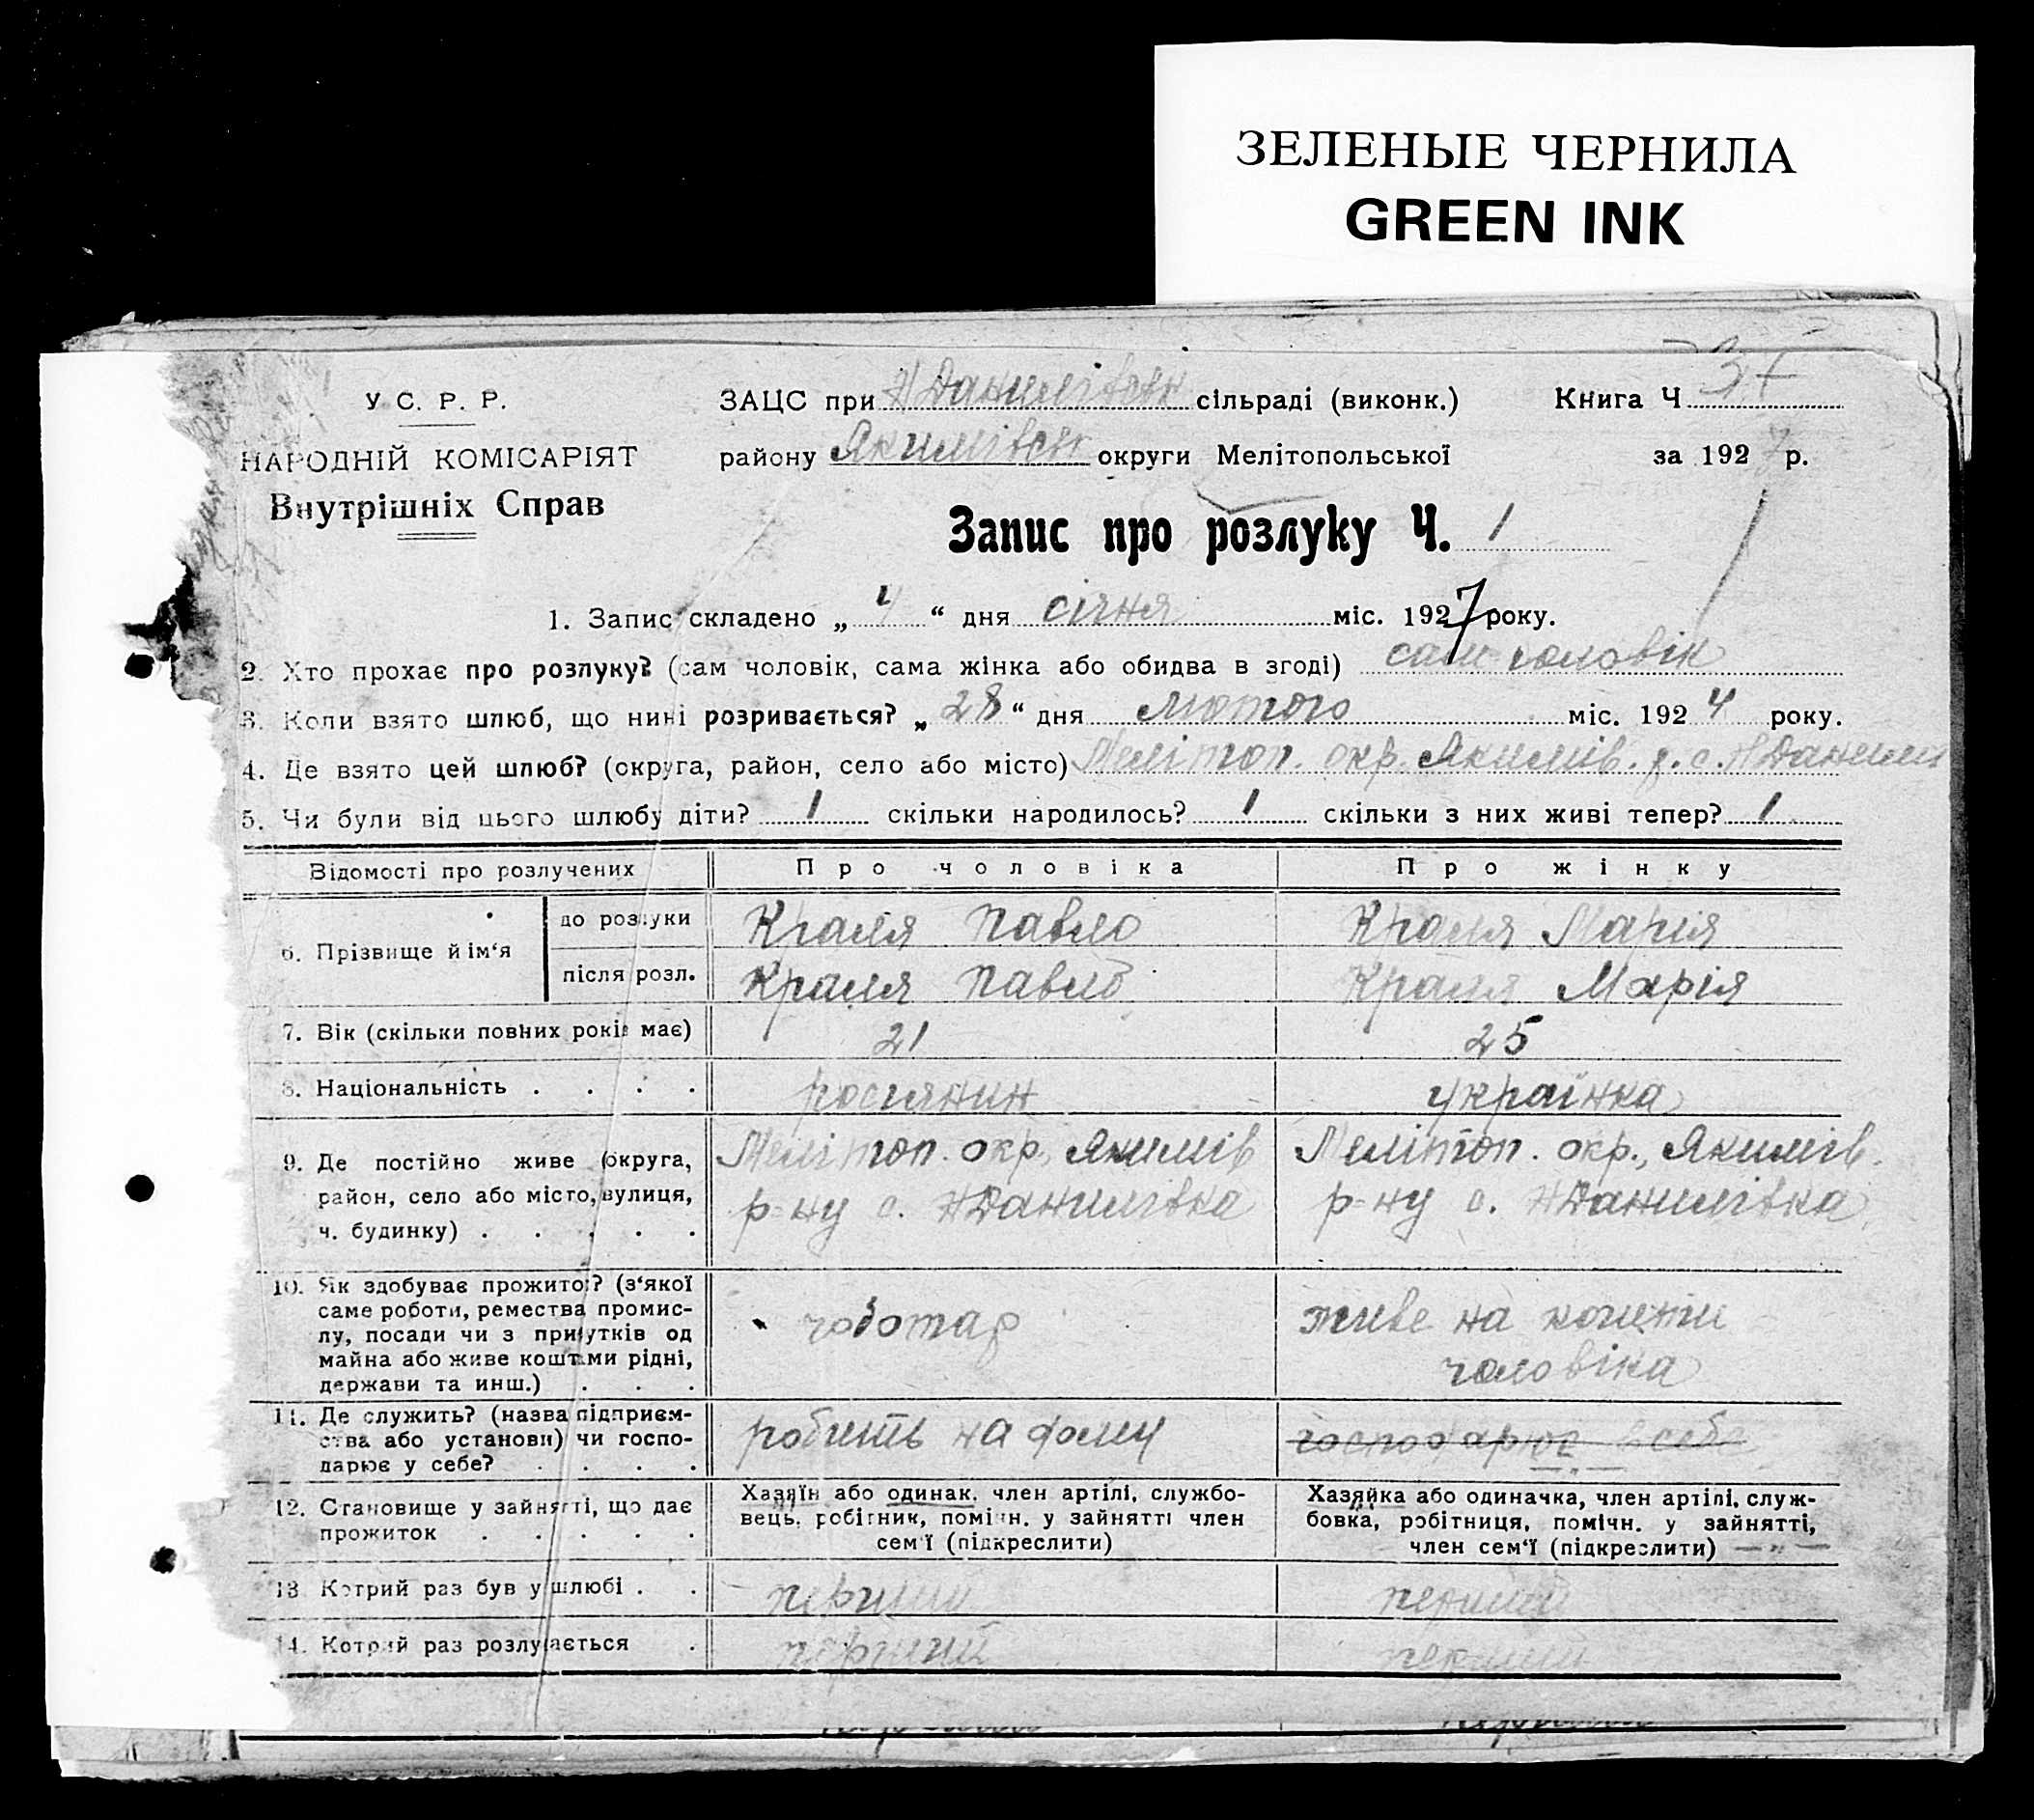 ЗЕЛЕНЫЕ ЧЕРНИЛА
GREEN INK
У С. Р. Р.
НАРОДНІЙ КОМІСАРІЯТ
Внутрішніх Справ
ЗАЦС при Н Данилівськ сільраді (виконк.)
району Якимівськ округи Мелітопольської
Книга Ч
за 1927 р.
Запис про розлуку Ч. 1
1. Запис складено „ 4 “ дня січня міс. 1927 року.
2. Хто прохає про розлуку? (сам чоловік, сама жінка або обидва в згоді) сам чоловік
3. Коли взято шлюб, що нині розривається? „ 28 “ дня лютого міс. 1924 року.
4. Де взято цей шлюб? (округа, район, село або місто) Мелітоп. окр. Якимів. р. с. Н Данилів
5. Чи були від цього шлюбу діти? 1 скільки народилось? 1 скільки з них живі тепер? 1
Відомості про розлучених Про чоловіка Про жінку
6. Прізвище й ім‘я до розлуки Краля Павло Краля Марія
після розл. Краля Павло Краля Марія
7. Вік (скільки повних років має) 21 25
8. Національність . . . . росіянин українка
9. Де постійно живе (округа, район, село або місто, вулиця, ч. будинку) . . . . .
Мелітоп. окр., Якимів
р-ну с. Н Данилівка
Меліпоп. окр., Якимів.
р-ну с. Н Данилівка
10. Як здобуває прожиток? (з‘якої
саме роботи, ремества промис-
лу, посади чи з прибутків од
майна або живе коштами рідні,
держави та инш.) . . .
чоботар
живе на кошти
чоловіка
11. Де служить? (назва підприєм-
ства або установи) чи госпо-
дарює у себе? . . . .
робить на дому
господарює в себе
— „ —
12. Становище у зайнятті, що дає
прожиток . . . . .
Хазяїн або одинак, член артілі, службо-
вець, робітник, помічн. у зайнятті член
сем‘ї (підкреслити)
Хазяйка або одиначка, член артілі, служ-
бовка, робітниця, помічн. у зайнятті,
член сем‘ї (підкреслити) — „ —
13. Котрий раз був у шлюбі . . перший перший
14. Котрий раз розлучається . перший перший